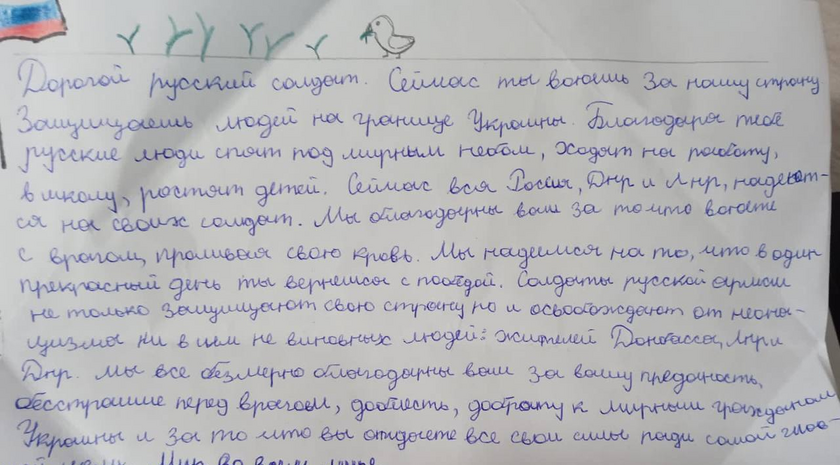 Дорогой русский солдат. Сейчас ты воюешь за нашу страну
Защищаешь людей на границе Украины. Благодаря тебе
русские люди спят под мирным небом, ходят на работу,
в школу, ростят детей. Сейчас вся Россия, Днр и Лнр, надеют-
ся на своих солдат. Мы благодарны вам за то что воюете
с врагом, проливая свою кровь. Мы надеемся на то, что в один
прекрасный день ты вернешься с победой. Солдаты русской армии
не только защищают свою страну но и освобождают от неона-
цизма ни в чем не виновных людей: жителей Донбасса, Лнр и
Днр. Мы все безмерно благодарны вам за вашу преданность,
бесстрашие перед врагом, доблесть, доброту к мирным гражданам
Украины и за то что вы отдаете все свои силы ради самой глав-
Мир во всем мире